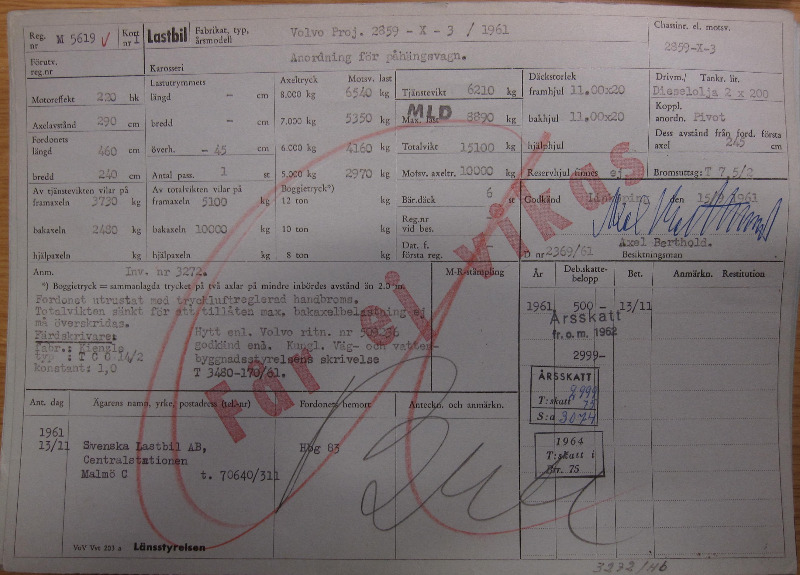 Reg. nr M 5619 Kort nr 1 Lastbil Fabrikat, typ, årsmodell Volvo Proj. 2859 - X - 3 / 1961 Chassinr. el. motsv. 2859-X-3
Förutv. reg.nr Karosseri Anordning för påhängsvagn.
Motoreffekt 220 hk
Axelavstånd 290 cm
Fordonets längd 460 cm
bredd 240 cm
Lastutrymmets längd - cm
bredd - cm
överh. - 45 cm
Antal pass. 1 st
Axeltryck Motsv. last
8.000 kg 6540 kg
7.000 kg 5350 kg
6.000 kg 4160 kg
5.000 kg 2970 kg
Tjänstevikt 6210 kg
MLD
Max. last 8890 kg
Totalvikt 15100 kg
Motsv. axeltr. 10000 kg
Däckstorlek
framhjul 11.00x20
bakhjul 11.00x20
hjälphjul
Reservhjul finnes ej
Drivm./ Tankr. lit.
Dieselolja 2 x 200
Koppl. anordn. Pivot
Dess avstånd från ford. första axel 245 cm
Bromsuttag: T 7,5/2
Av tjänstevikten vilar på
framaxeln 3730 kg
bakaxeln 2480 kg
hjälpaxeln kg
Av totalvikten vilar på
framaxeln 5100 kg
bakaxeln 10000 kg
hjälpaxeln kg
Boggietryck*)
12 ton kg
10 ton kg
8 ton kg
Bär.däck 6 st
Reg.nr vid bes. -
Dat. f. första reg. -
Godkänd Linköping den 15/ 1961
Axel Berthold.
D nr 2369/61 Besiktningsman
Anm. Inv. nr 3272.
*) Boggietryck = sammanlagda trycket på två axlar på mindre inbördes avstånd än 2.0 m.
Fordonet utrustat med tryckluftreglerad handbroms.
Totalvikten sänkt för att tillåten max. bakaxelbelastning ej
må överskridas.
Färdskrivare:
Fabr.: Kienzle
typ : T C O 14/2
konstant: 1,0
Hytt enl. Volvo ritn. nr
godkänd enl. Kungl. Väg- och vatten-
byggnadsstyrelsens skrivelse
T 3480-170/61.
M-R-stämpling
År Deb.skatte-belopp Bet. Anmärkn. Restitution
1961 500 - 13/11
Årsskatt
fr. o. m. 1962
2999-
ÅRSSKATT 2999
T:skatt 75
S:a 3074
1964
T:skatt i
Btr. 75
Får ej vikas
Ant. dag Ägarens namn, yrke, postadress (tel-nr) Fordonets hemort Anteckn. och anmärkn.
1961
13/11 Svenska Lastbil AB, Hög 83
Centralstationen
Malmö C t. 70640/311
VoV Vst 203 a Länsstyrelsen
3272/Hb